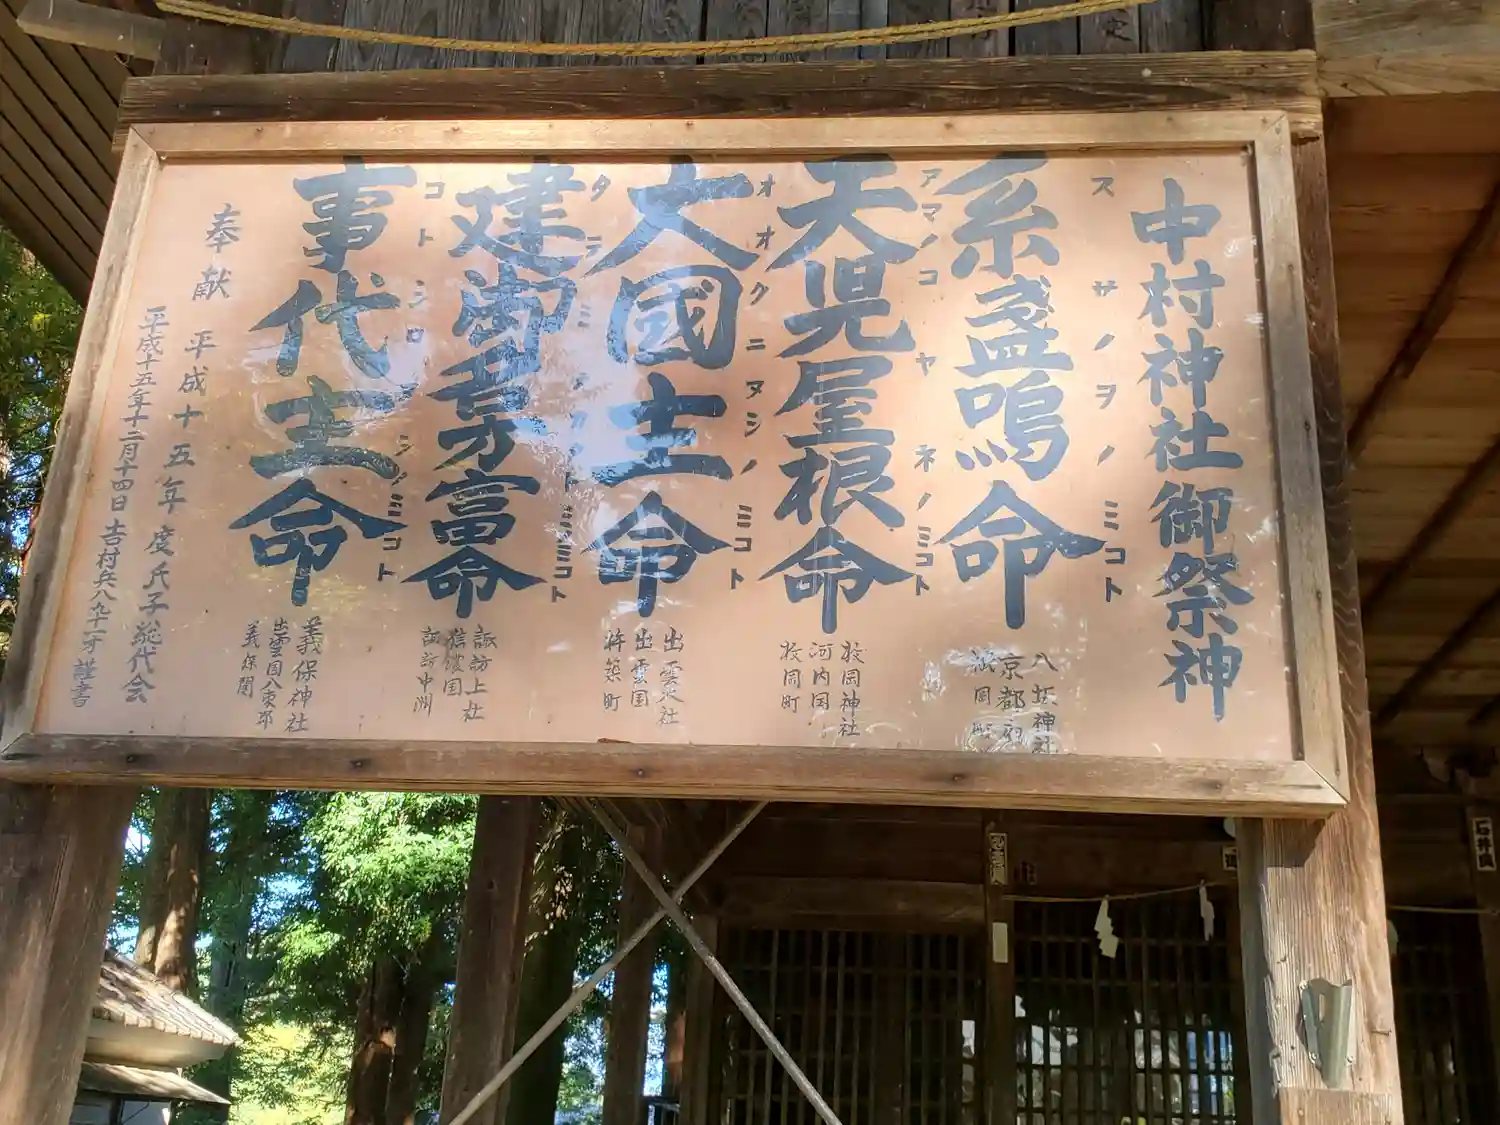 中村神社御祭神
スサノヲノミコト
素盞嗚命
八坂神社
京都府
祇園町
アマノコヤネノミコト
天児屋根命
枚岡神社
河内国
枚岡町
オオクニヌシノミコト
大國主命
出雲大社
出雲国
杵築町
建御名方富命
諏訪上社
信濃国
諏訪中洲
コトシロヌシノミコト
事代主命
美保神社
出雲国八束郡
美保関
奉献 平成十五年度氏子総代会
平成十五年十二月十四日 吉村兵八 謹書
石井